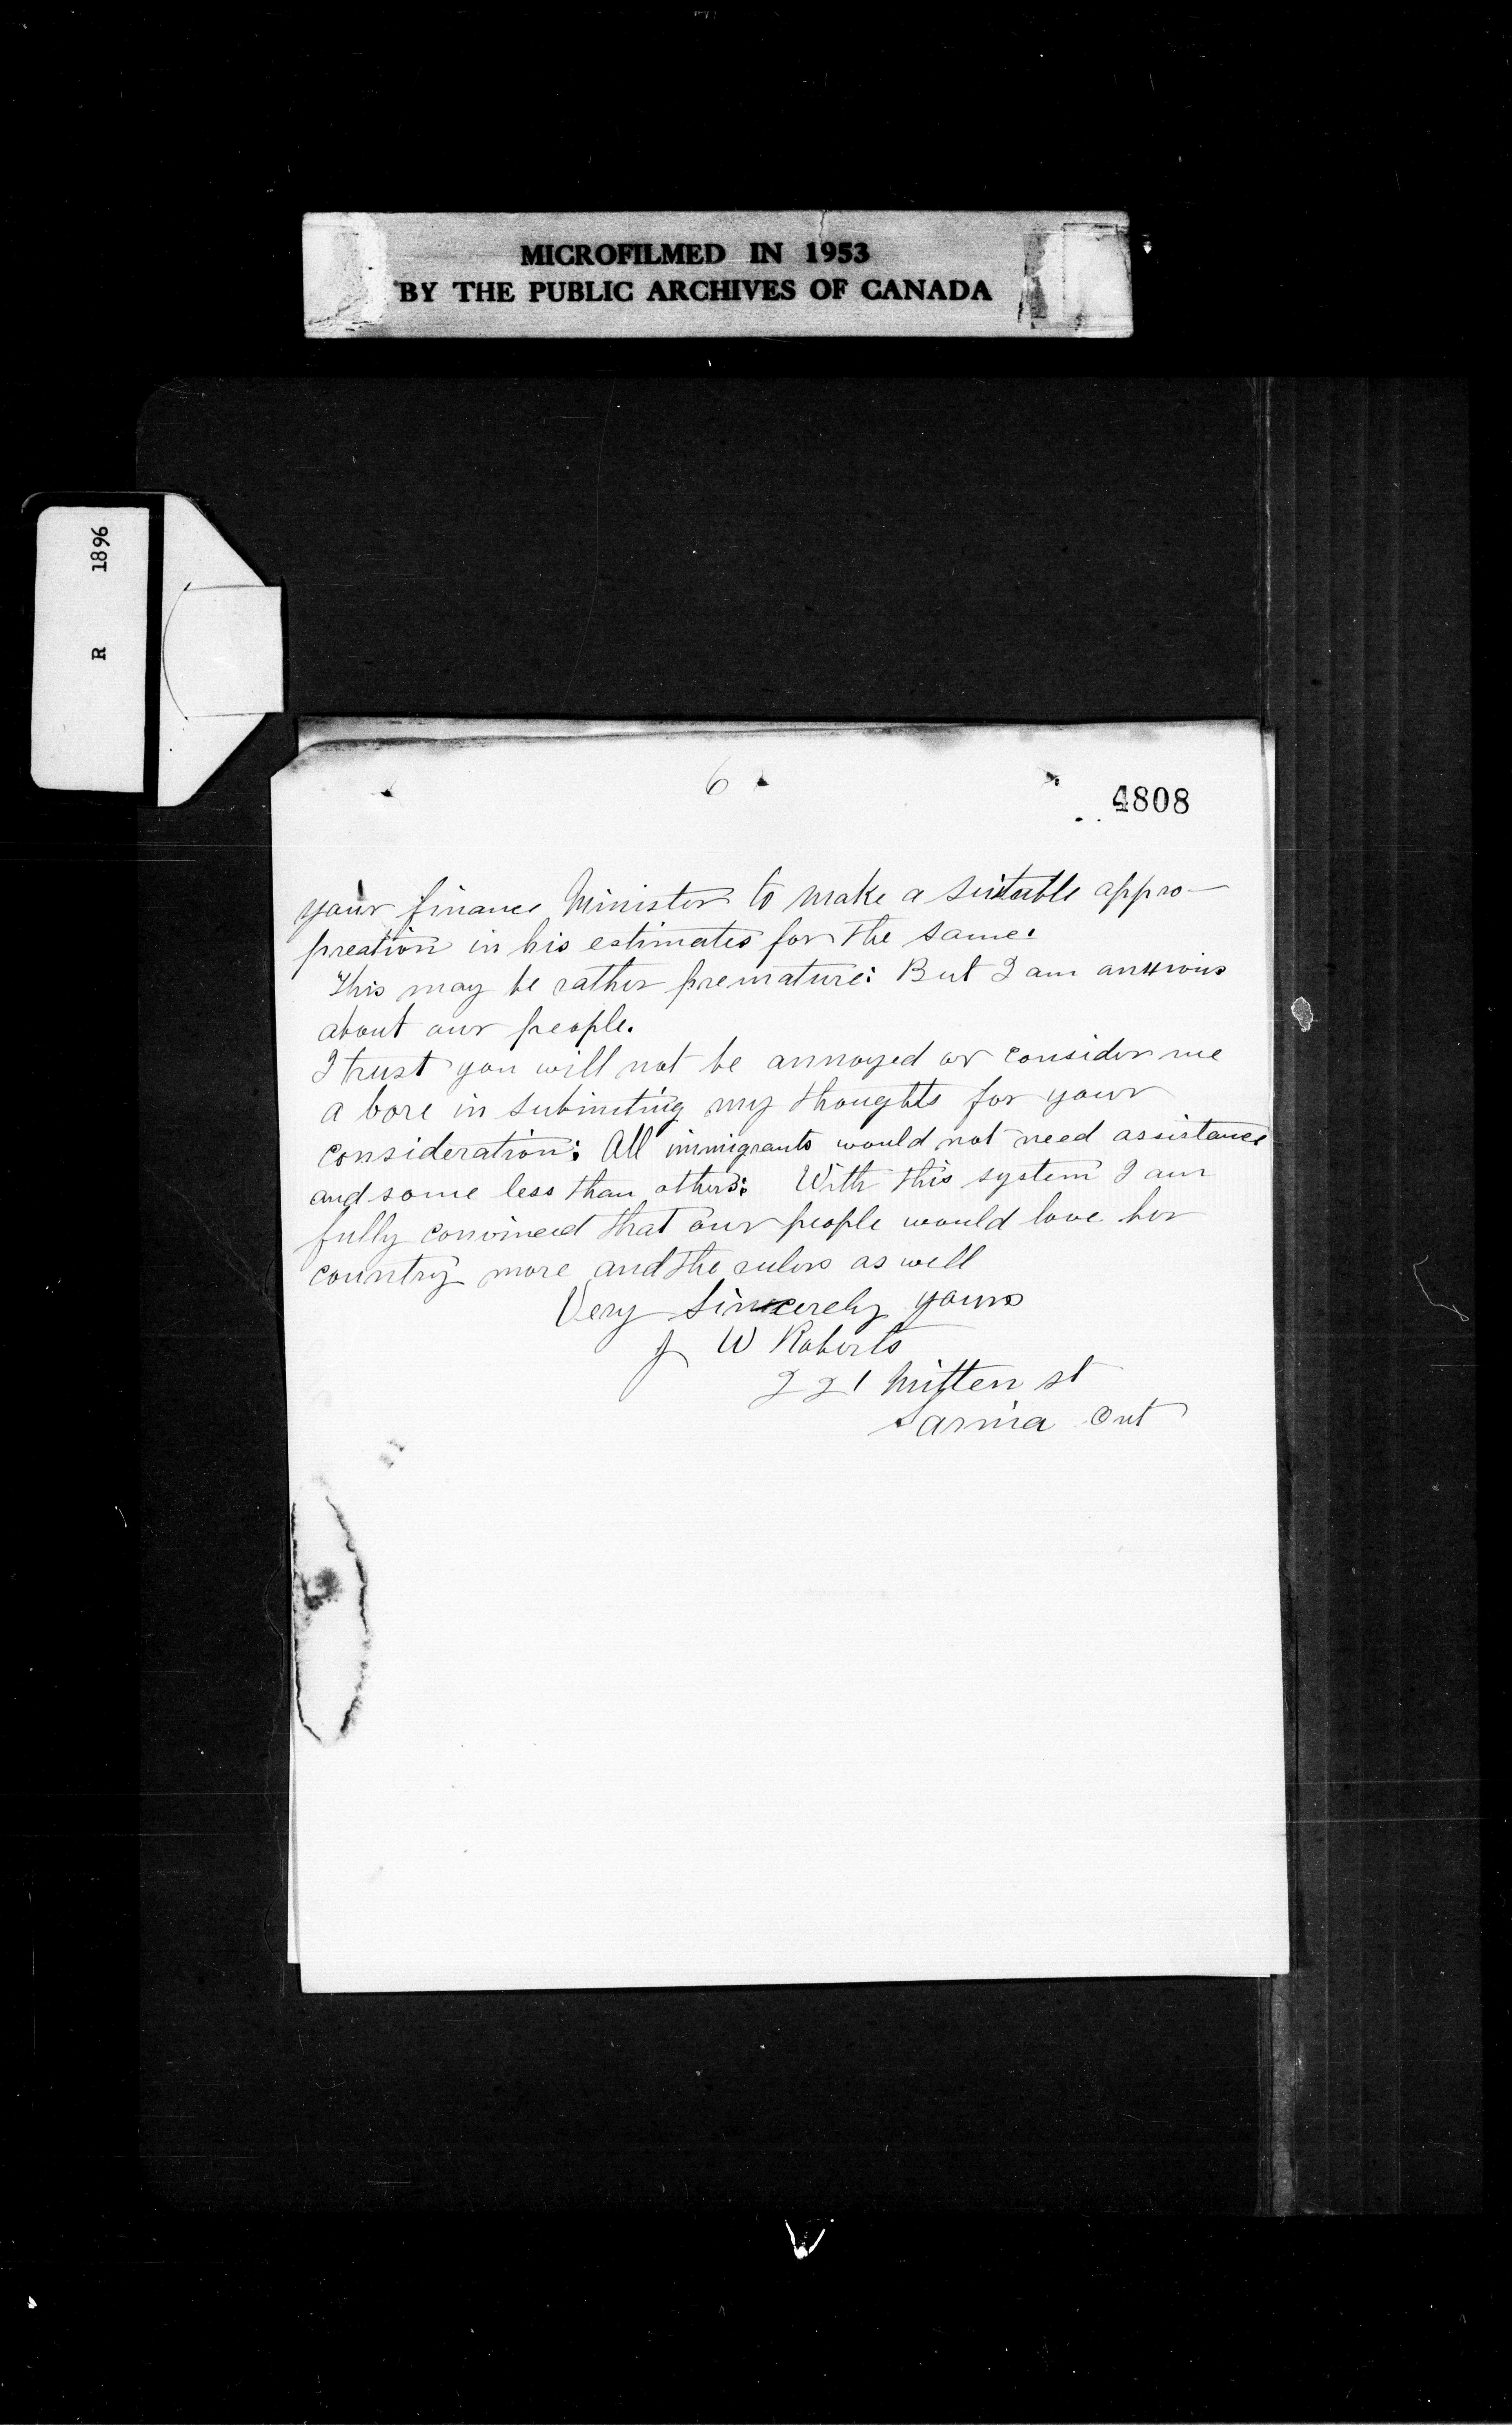 MICROFILMED IN 1953
BY THE PUBLIC ARCHIVES OF CANADA
R 1896
6
4808
your finance Minister to make a suitable appro-
preation in his estimates for the same.
This may be rather premature: But I am anxious
about our people.
I trust you will not be annoyed or consider me
a bore in submiting my thoughts for your
consideration: All immigrants would not need assistance
and some less than others: With this system I am
fully convinced that our people would love her
country more and the rulers as well
Very Sincerely yours
J W Roberts
221 Mitten st
Sarnia Ont